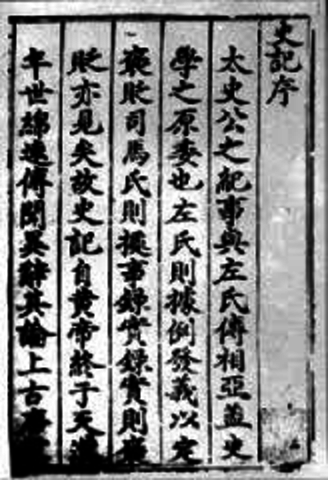 史記序
太史公之紀事與左氏傳相亞蓋史
學之原委也左氏則據例發義以定
褒貶司馬氏則據事錄實錄實則
貶亦見矣故史記自黃帝終于天漢
年世綿遠傳聞異辭其論上古